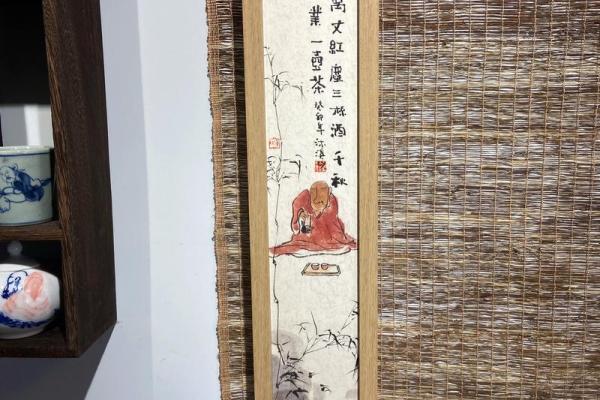 萬丈紅塵三杯酒千秋
業一壺茶
癸卯年